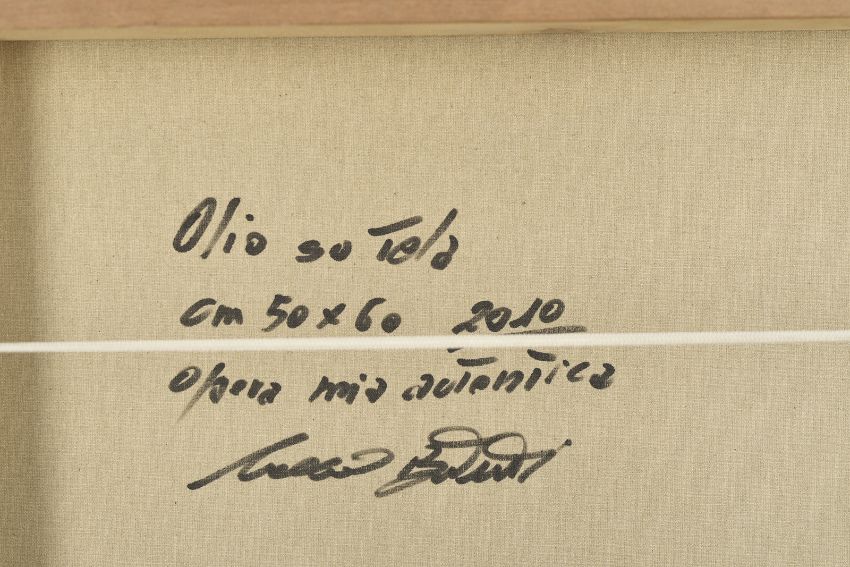 Olio su tela
cm 50x60 2010
opera mia autentica